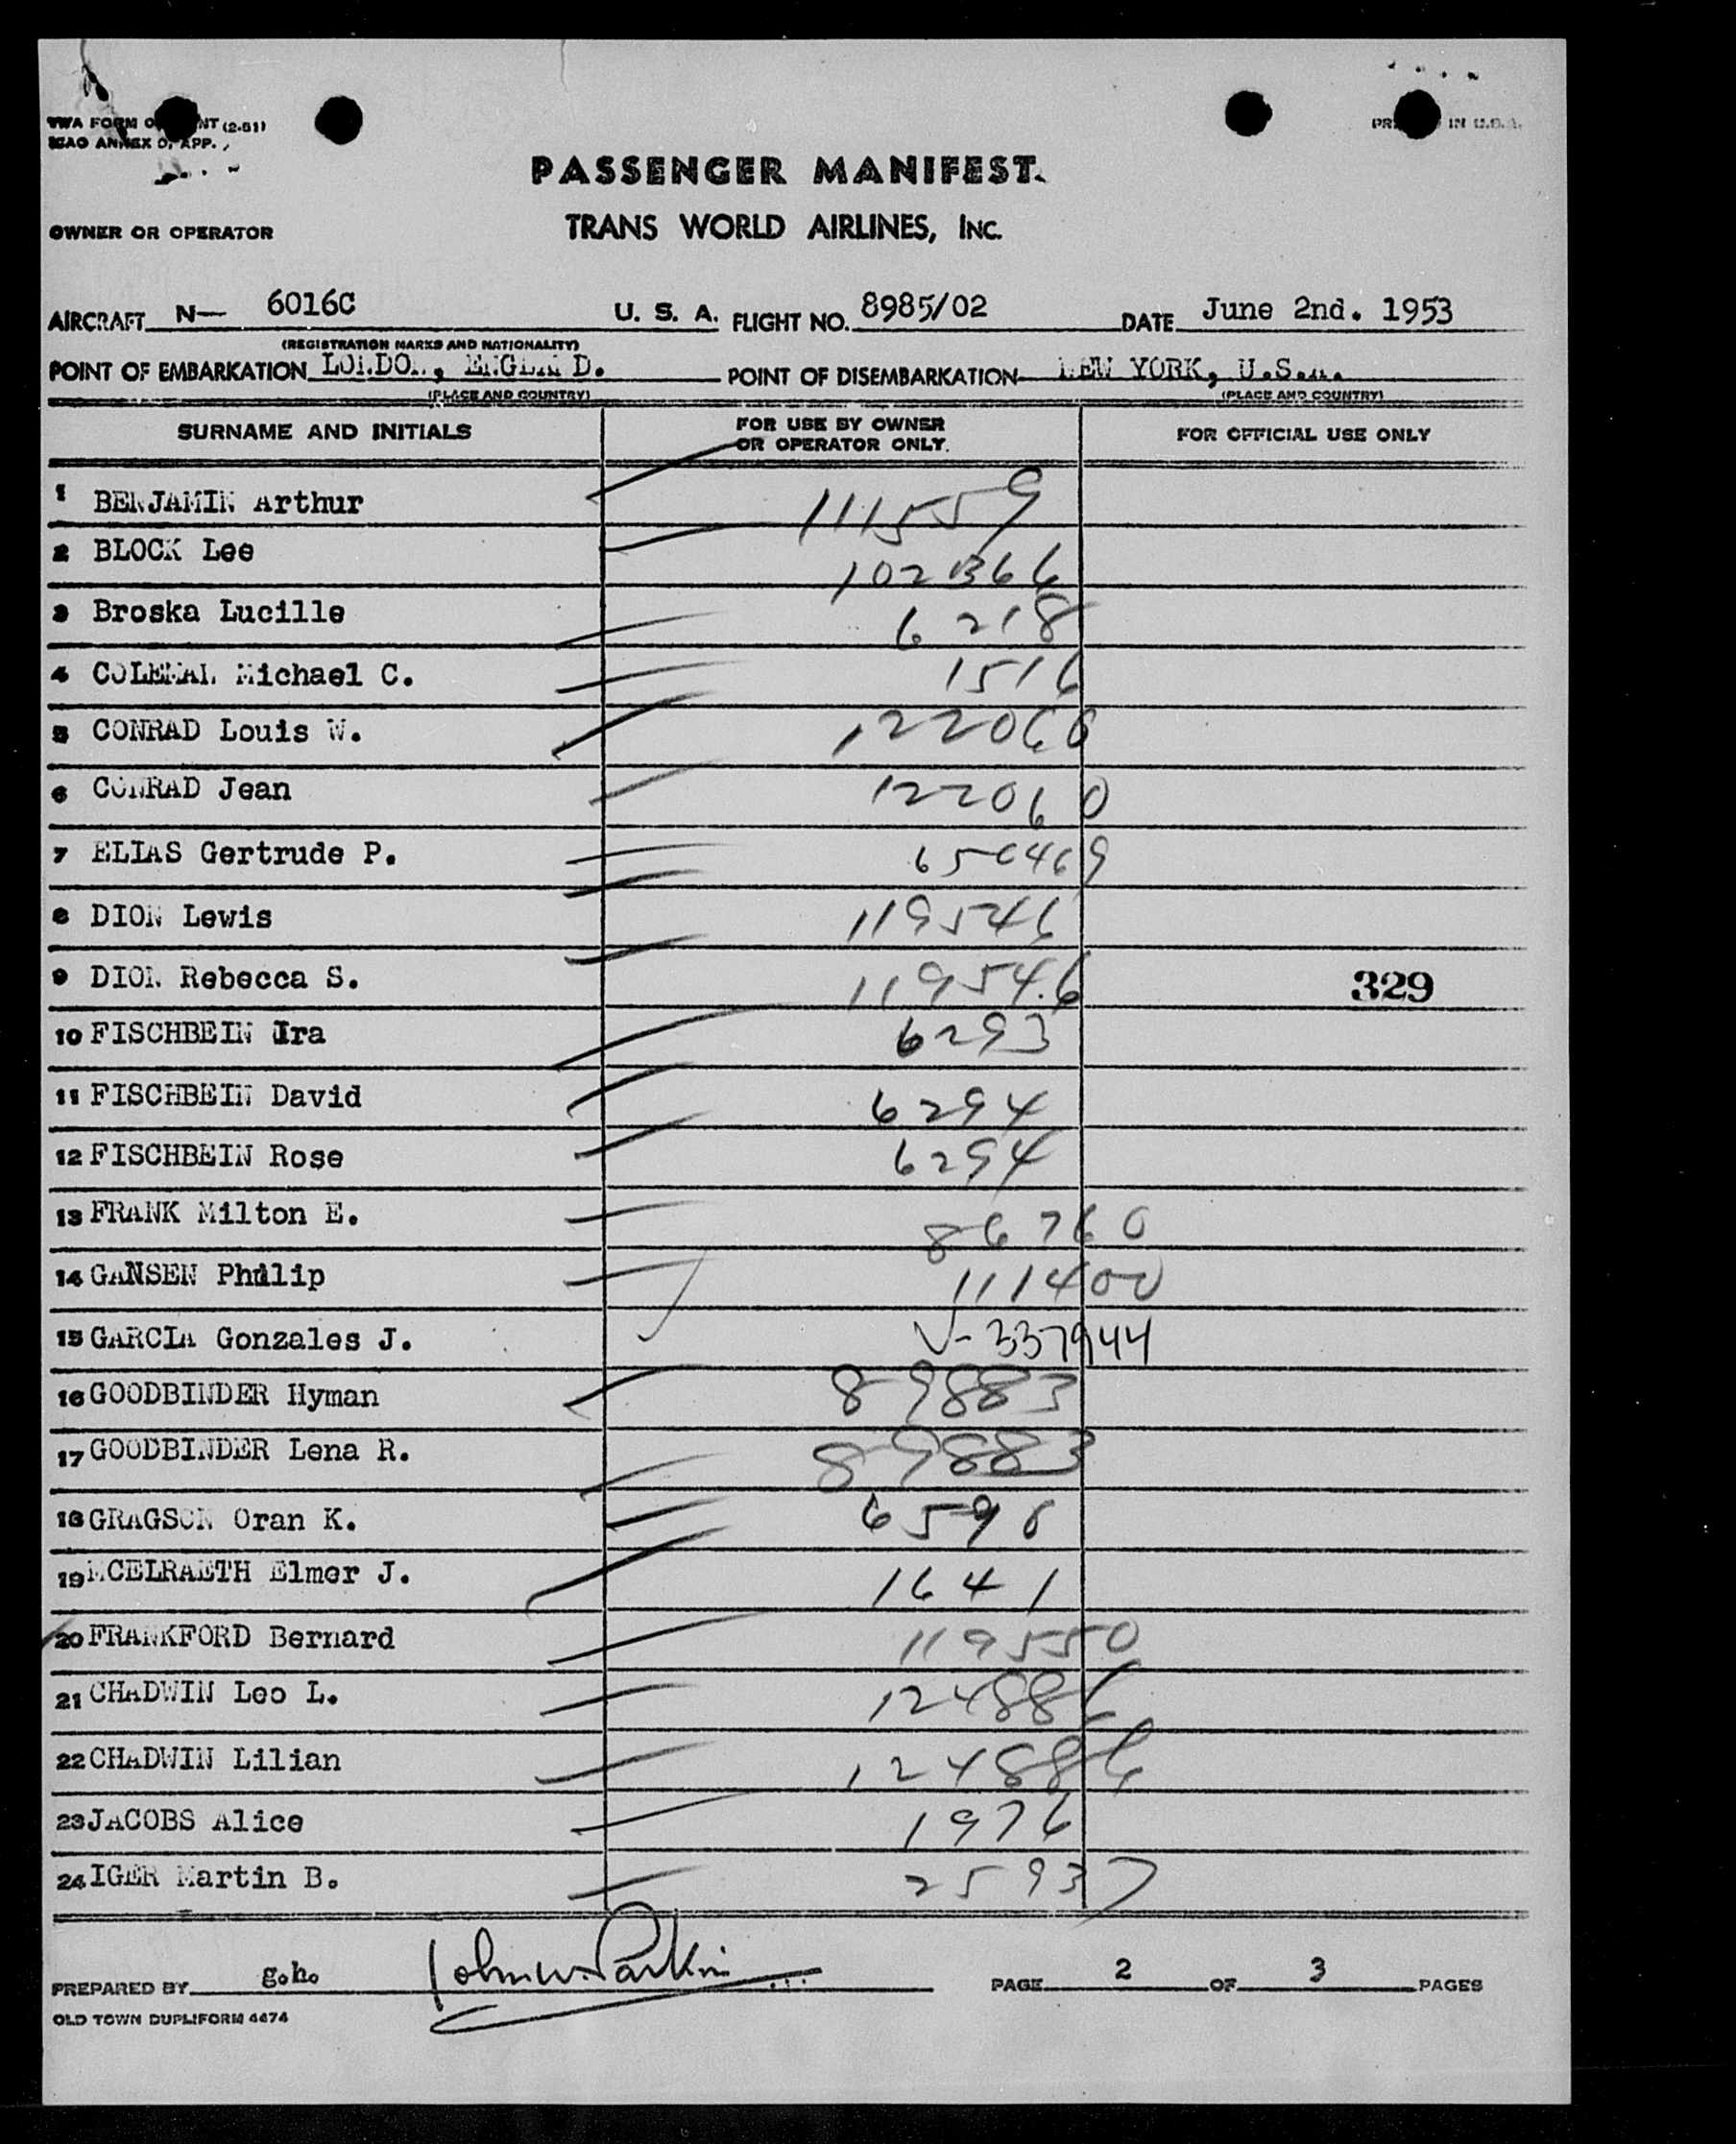 TWA FORM (2-51)
ICAO ANNEX 9, APP.
IN U.S.A.
PASSENGER MANIFEST
OWNER OR OPERATOR
TRANS WORLD AIRLINES, INC.
AIRCRAFT N— 6016C U. S. A. FLIGHT NO. 8985/02 DATE June 2nd. 1953
(REGISTRATION MARKS AND NATIONALITY)
POINT OF EMBARKATION LONDON, ENGLAND. POINT OF DISEMBARKATION NEW YORK, U.S.A.
(PLACE AND COUNTRY) (PLACE AND COUNTRY)
SURNAME AND INITIALS FOR USE BY OWNER OR OPERATOR ONLY. FOR OFFICIAL USE ONLY
1 BENJAMIN Arthur 111559
2 BLOCK Lee 102366
3 Broska Lucille 6218
4 COLEMAN Michael C. 1516
5 CONRAD Louis W. 122060
6 CONRAD Jean 122060
7 ELIAS Gertrude P. 650469
8 DION Lewis 119546
9 DION Rebecca S. 119546 329
10 FISCHBEIN Ira 6293
11 FISCHBEIN David 6294
12 FISCHBEIN Rose 6294
13 FRANK Milton E. 86760
14 GANSEN Philip 111400
15 GARCIA Gonzales J. V-337944
16 GOODBINDER Hyman 89883
17 GOODBINDER Lena R. 89883
18 GRAGSON Oran K. 6596
19 MCELRAETH Elmer J. 1641
20 FRANKFORD Bernard 119550
21 CHADWIN Leo L. 124886
22 CHADWIN Lilian 124886
23 JACOBS Alice 1976
24 IGER Martin B. 25937
PREPARED BY g.h. John W. Parkin PAGE 2 OF 3 PAGES
OLD TOWN DUPLIFORM 4474